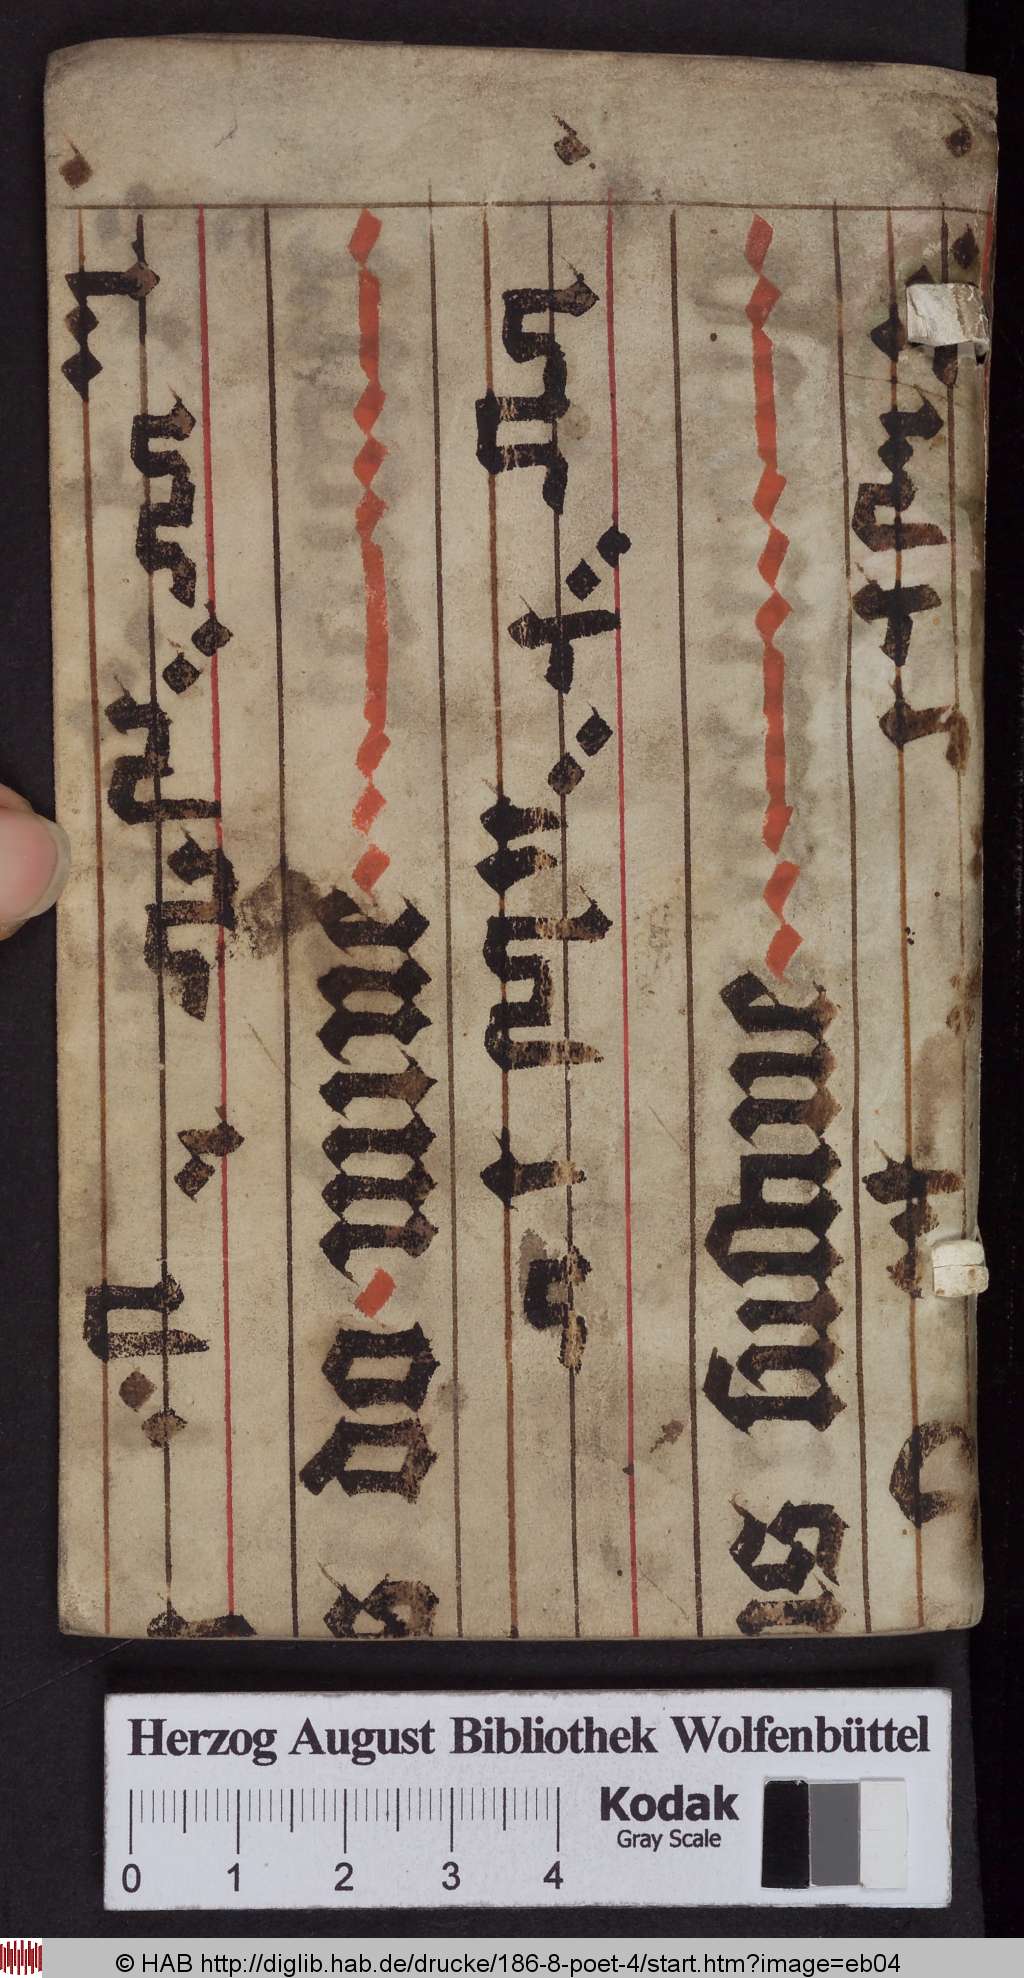 s do mine
Herzog August Bibliothek Wolfenbüttel
0 1 2 3 4
Kodak
Gray Scale
© HAB http://diglib.hab.de/drucke/186-8-poet-4/start.htm?image=eb04